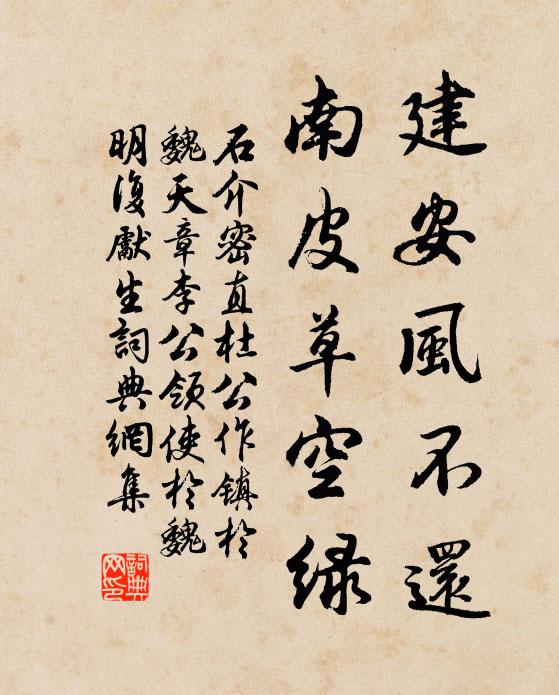 建安風不還
南皮草空緑
石介密直杜公作鎮於
魏天章李公領使於魏
明復獻生詞典網集
詞典
网印